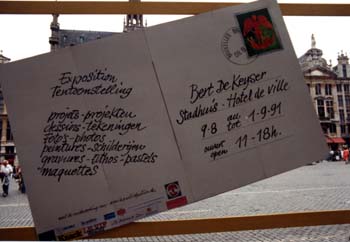 Exposition
Tentoonstelling
projets-projekten
dessins-tekeningen
Foto's-photos
peintures-schilderijen
gravures-lithos-pastels
maquettes
Bert De Keyser
Stadhuis-Hotel de ville
9-8 au tot 1-9-91
ouvert open 11-18h.